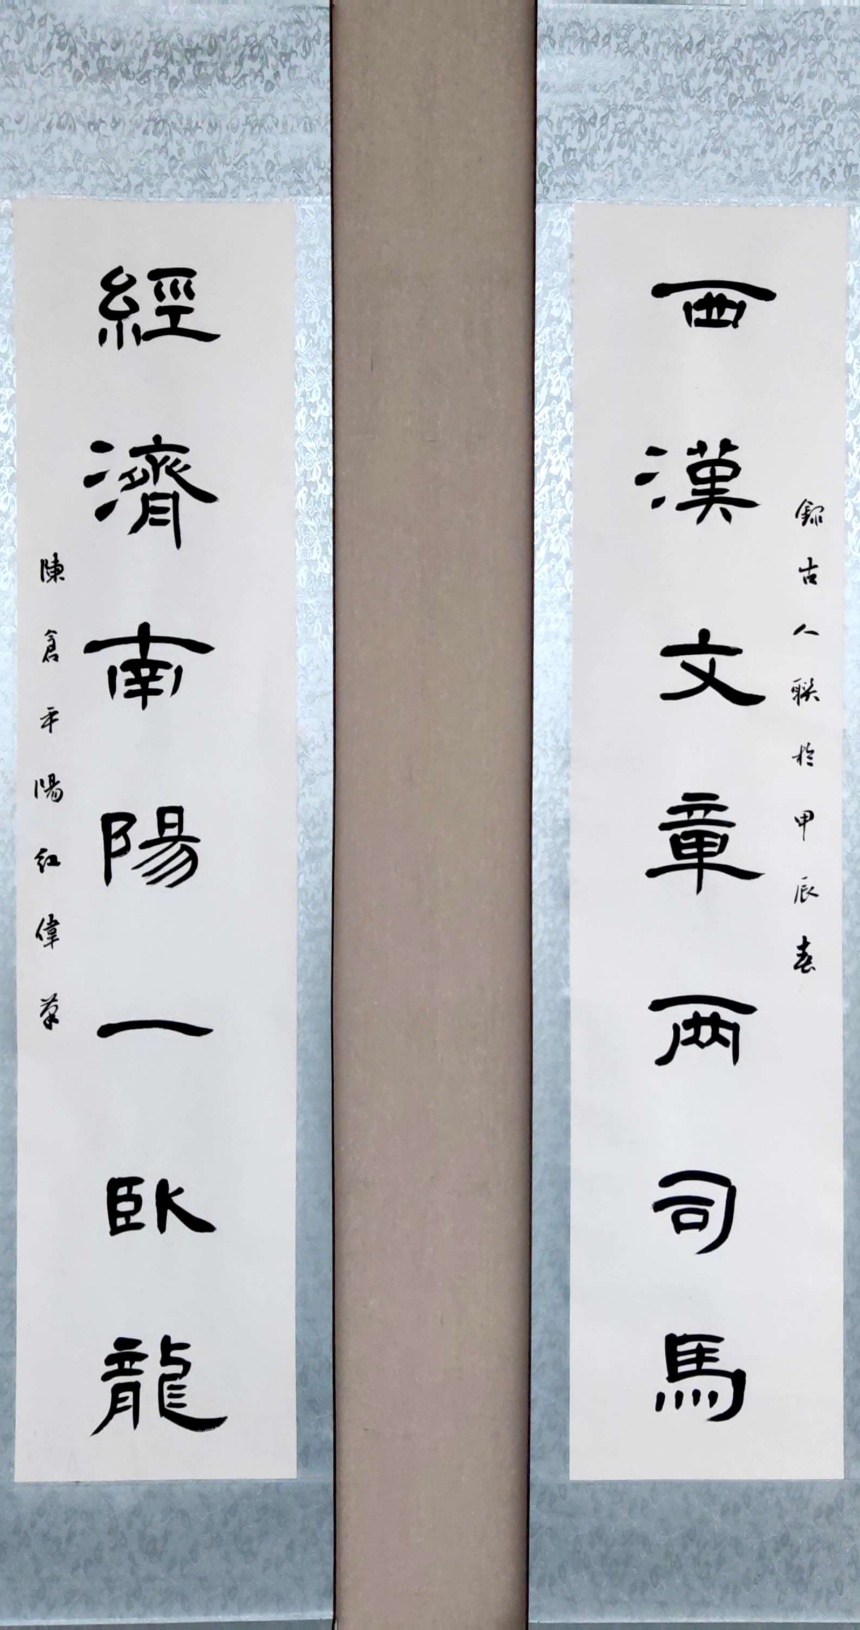 錄古人聯於甲辰春
西漢文章兩司馬
經濟南陽一臥龍
陳倉平陽紅偉筆